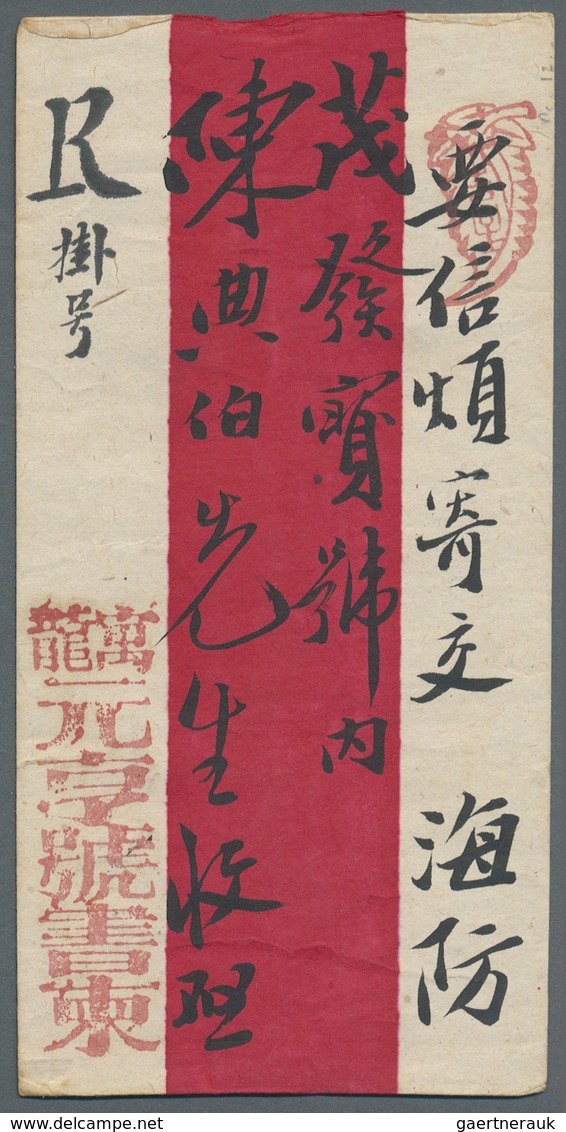 要信煩寄交 海防
茂發寶號內
陳典伯先生收照
R
掛号
萬龍
元亨號書柬
delcampe.net
gaertnerauk